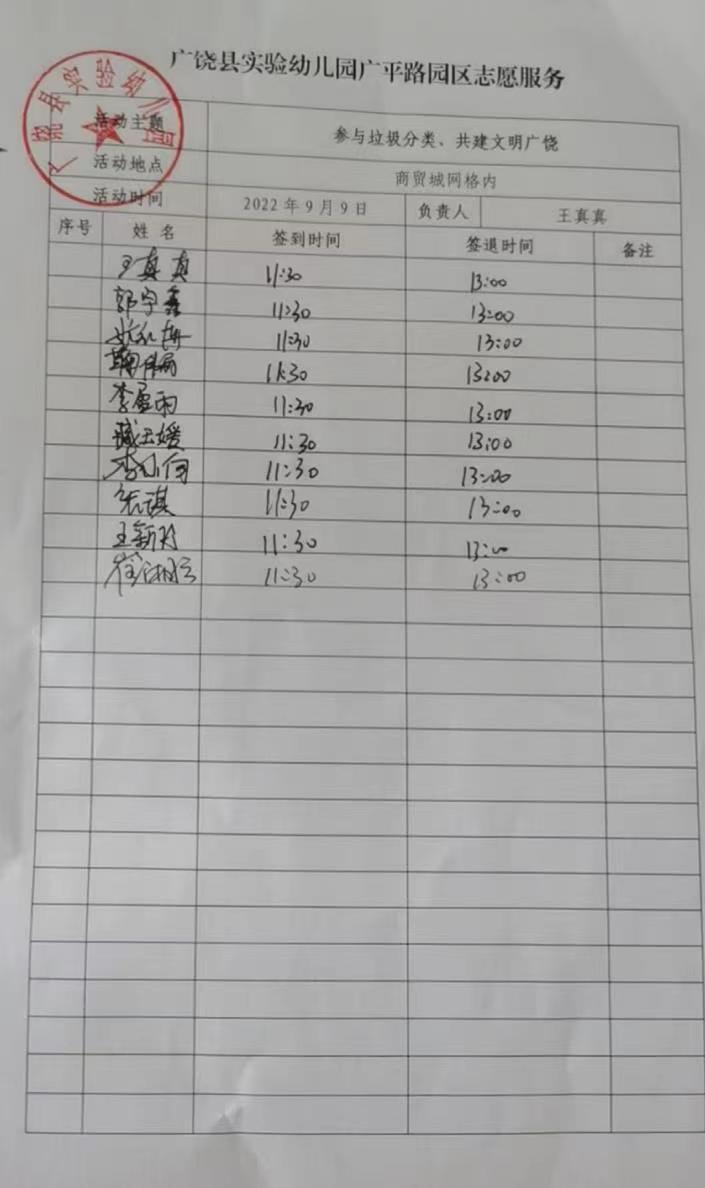 广饶县实验幼儿园广平路园区志愿服务
广饶县实验幼儿园
活动主题 参与垃圾分类、共建文明广饶
活动地点 商贸城网格内
活动时间 2022年9月9日 负责人 王真真
序号 姓名 签到时间 签退时间 备注
王真真 11:30 13:00
郭宇鑫 11:30 13:00
11:30 13:00
11:30 13:00
李雨 11:30 13:00
臧玉媛 11:30 13:00
李 11:30 13:00
张琪 11:30 13:00
王新 11:30 13:00
崔 11:30 13:00